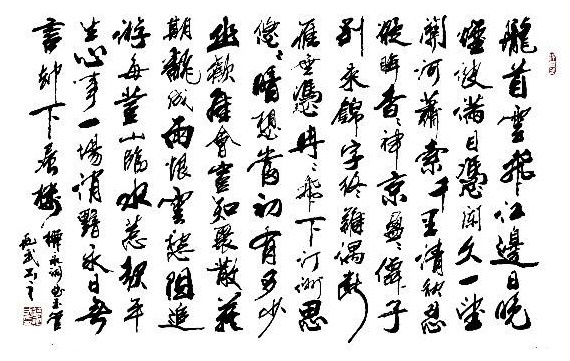 隴首雲飛江邊日晚
煙波滿目憑闌久一望
關河蕭索千里清秋忍
凝眸杳〻神京盈〻僊子
別來錦字終難偶斷
雁無憑冉〻飛下汀洲思
悠〻暗想當初有多少
幽歡佳會豈知聚散難
期翻成雨恨雲愁阻追
游每登山臨水惹起平
生心事一場消黯永日無
言卻下層樓 柳永詞曲玉管